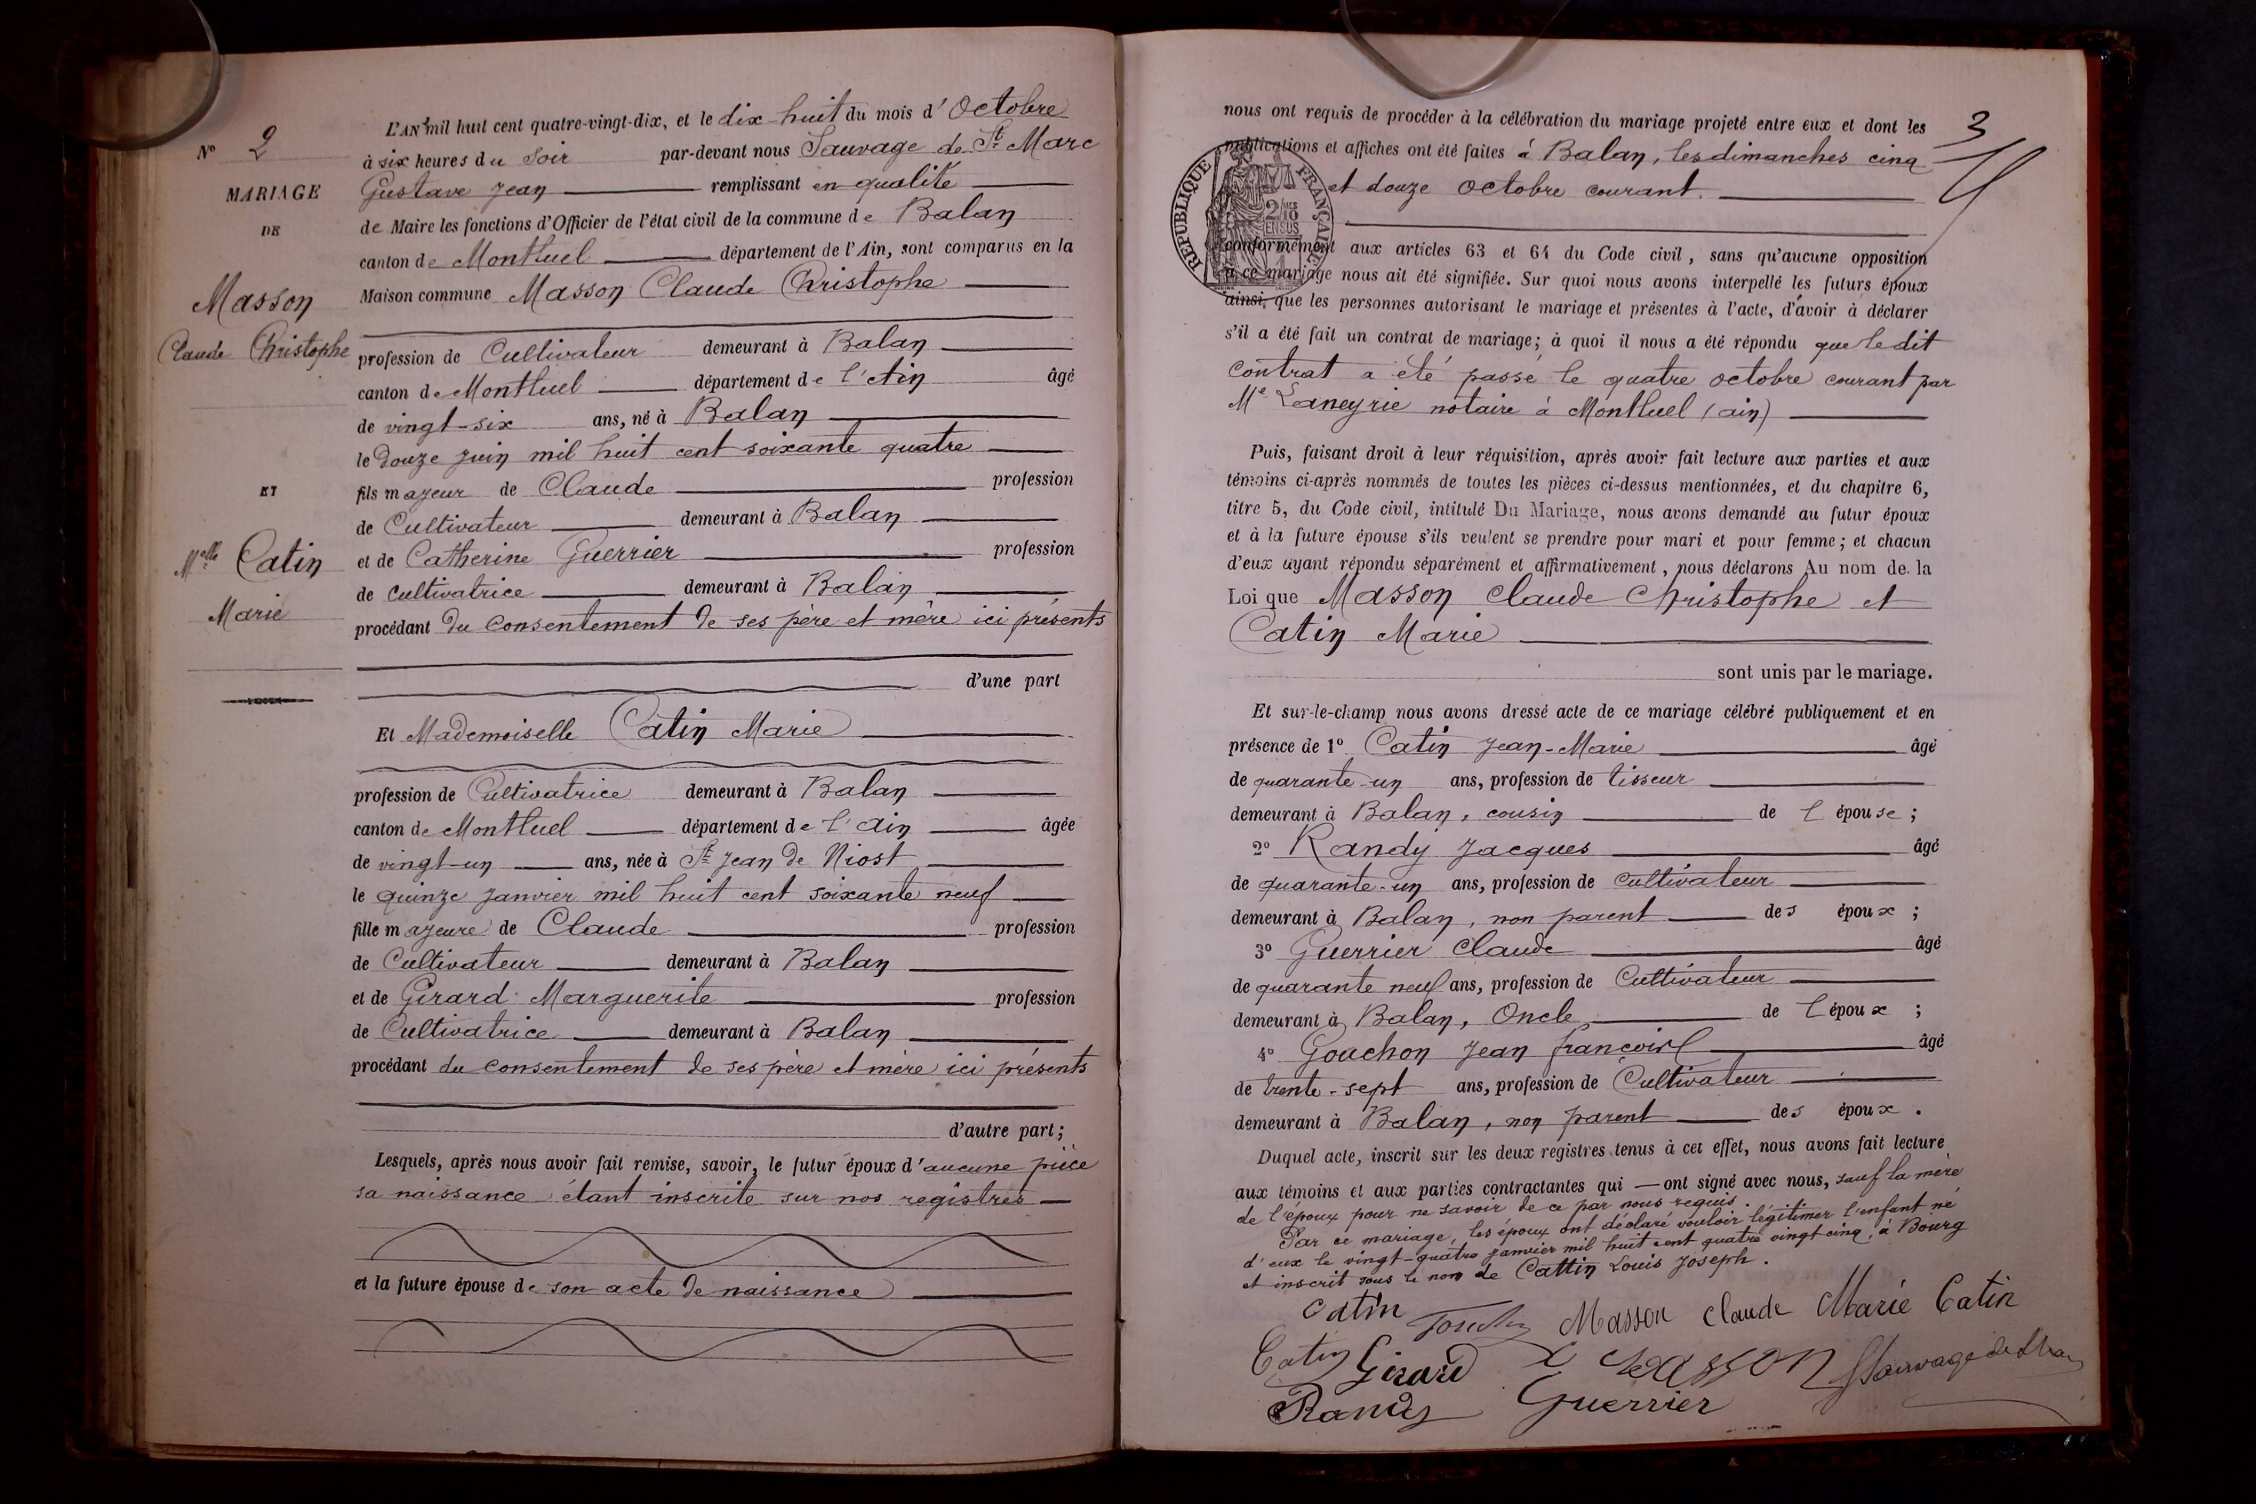 L'AN mil huit cent quatre-vingt-dix, et le dix-huit du mois d'Octobre
à six heures du soir par-devant nous Sauvage de St Marc
Gustave Jean remplissant en qualité
de Maire les fonctions d'Officier de l'état civil de la commune de Balan
canton de Montluel département de l'Ain, sont comparus en la
Maison commune Masson Claude Christophe
profession de Cultivateur demeurant à Balan
canton de Montluel département de l'Ain âgé
de vingt-six ans, né à Balan
le douze juin mil huit cent soixante quatre
fils majeur de Claude profession
de Cultivateur demeurant à Balan
et de Catherine Guerrier profession
de cultivatrice demeurant à Balan
procédant du consentement de ses père et mère ici présents
d'une part
Et Mademoiselle Catin Marie
profession de Cultivatrice demeurant à Balan
canton de Montluel département de l'Ain âgée
de vingt-un ans, née à St Jean de Niost
le quinze janvier mil huit cent soixante neuf
fille majeure de Claude profession
de Cultivateur demeurant à Balan
et de Girard Marguerite profession
de Cultivatrice demeurant à Balan
procédant du consentement de ses père et mère ici présents
d'autre part;
Lesquels, après nous avoir fait remise, savoir, le futur époux d'aucune pièce
sa naissance étant inscrite sur nos registres
et la future épouse de son acte de naissance
No 2
MARIAGE
DE
Masson
Claude Christophe
ET
Melle Catin
Marie
3
nous ont requis de procéder à la célébration du mariage projeté entre eux et dont les
publications et affiches ont été faites à Balan, les dimanches cinq
et douze octobre courant.
RÉPUBLIQUE FRANÇAISE
2/10 EN SUS
conformément aux articles 63 et 64 du Code civil, sans qu'aucune opposition
à ce mariage nous ait été signifiée. Sur quoi nous avons interpellé les futurs époux
ainsi, que les personnes autorisant le mariage et présentes à l'acte, d'avoir à déclarer
s'il a été fait un contrat de mariage; à quoi il nous a été répondu que le dit
contrat a été passé le quatre octobre courant par
Me Laneyrie notaire à Montluel (ain)
Puis, faisant droit à leur réquisition, après avoir fait lecture aux parties et aux
témoins ci-après nommés de toutes les pièces ci-dessus mentionnées, et du chapitre 6,
titre 5, du Code civil, intitulé Du Mariage, nous avons demandé au futur époux
et à la future épouse s'ils veulent se prendre pour mari et pour femme; et chacun
d'eux ayant répondu séparément et affirmativement, nous déclarons Au nom de la
Loi que Masson Claude Christophe et
Catin Marie
sont unis par le mariage.
Et sur-le-champ nous avons dressé acte de ce mariage célébré publiquement et en
présence de 1o Catin Jean-Marie âgé
de quarante-un ans, profession de tisseur
demeurant à Balan, cousin de l'épouse;
2o Randy Jacques âgé
de quarante-un ans, profession de cultivateur
demeurant à Balan, non parent des époux;
3o Guerrier Claude âgé
de quarante neuf ans, profession de Cultivateur
demeurant à Balan, Oncle de l'époux;
4o Gouchon Jean françois âgé
de trente-sept ans, profession de Cultivateur
demeurant à Balan, non parent des époux.
Duquel acte, inscrit sur les deux registres tenus à cet effet, nous avons fait lecture
aux témoins et aux parties contractantes qui ont signé avec nous, sauf la mère
de l'époux pour ne savoir de ce par nous requis.
Par ce mariage, les époux ont déclaré vouloir légitimer l'enfant né
d'eux le vingt-quatre janvier mil huit cent quatre vingt cinq, à Bourg
et inscrit sous le nom de Cattin Louis Joseph.
Catin Masson Claude Marie Catin
Catin Girard Masson Sauvage de St Marc
Randy Guerrier